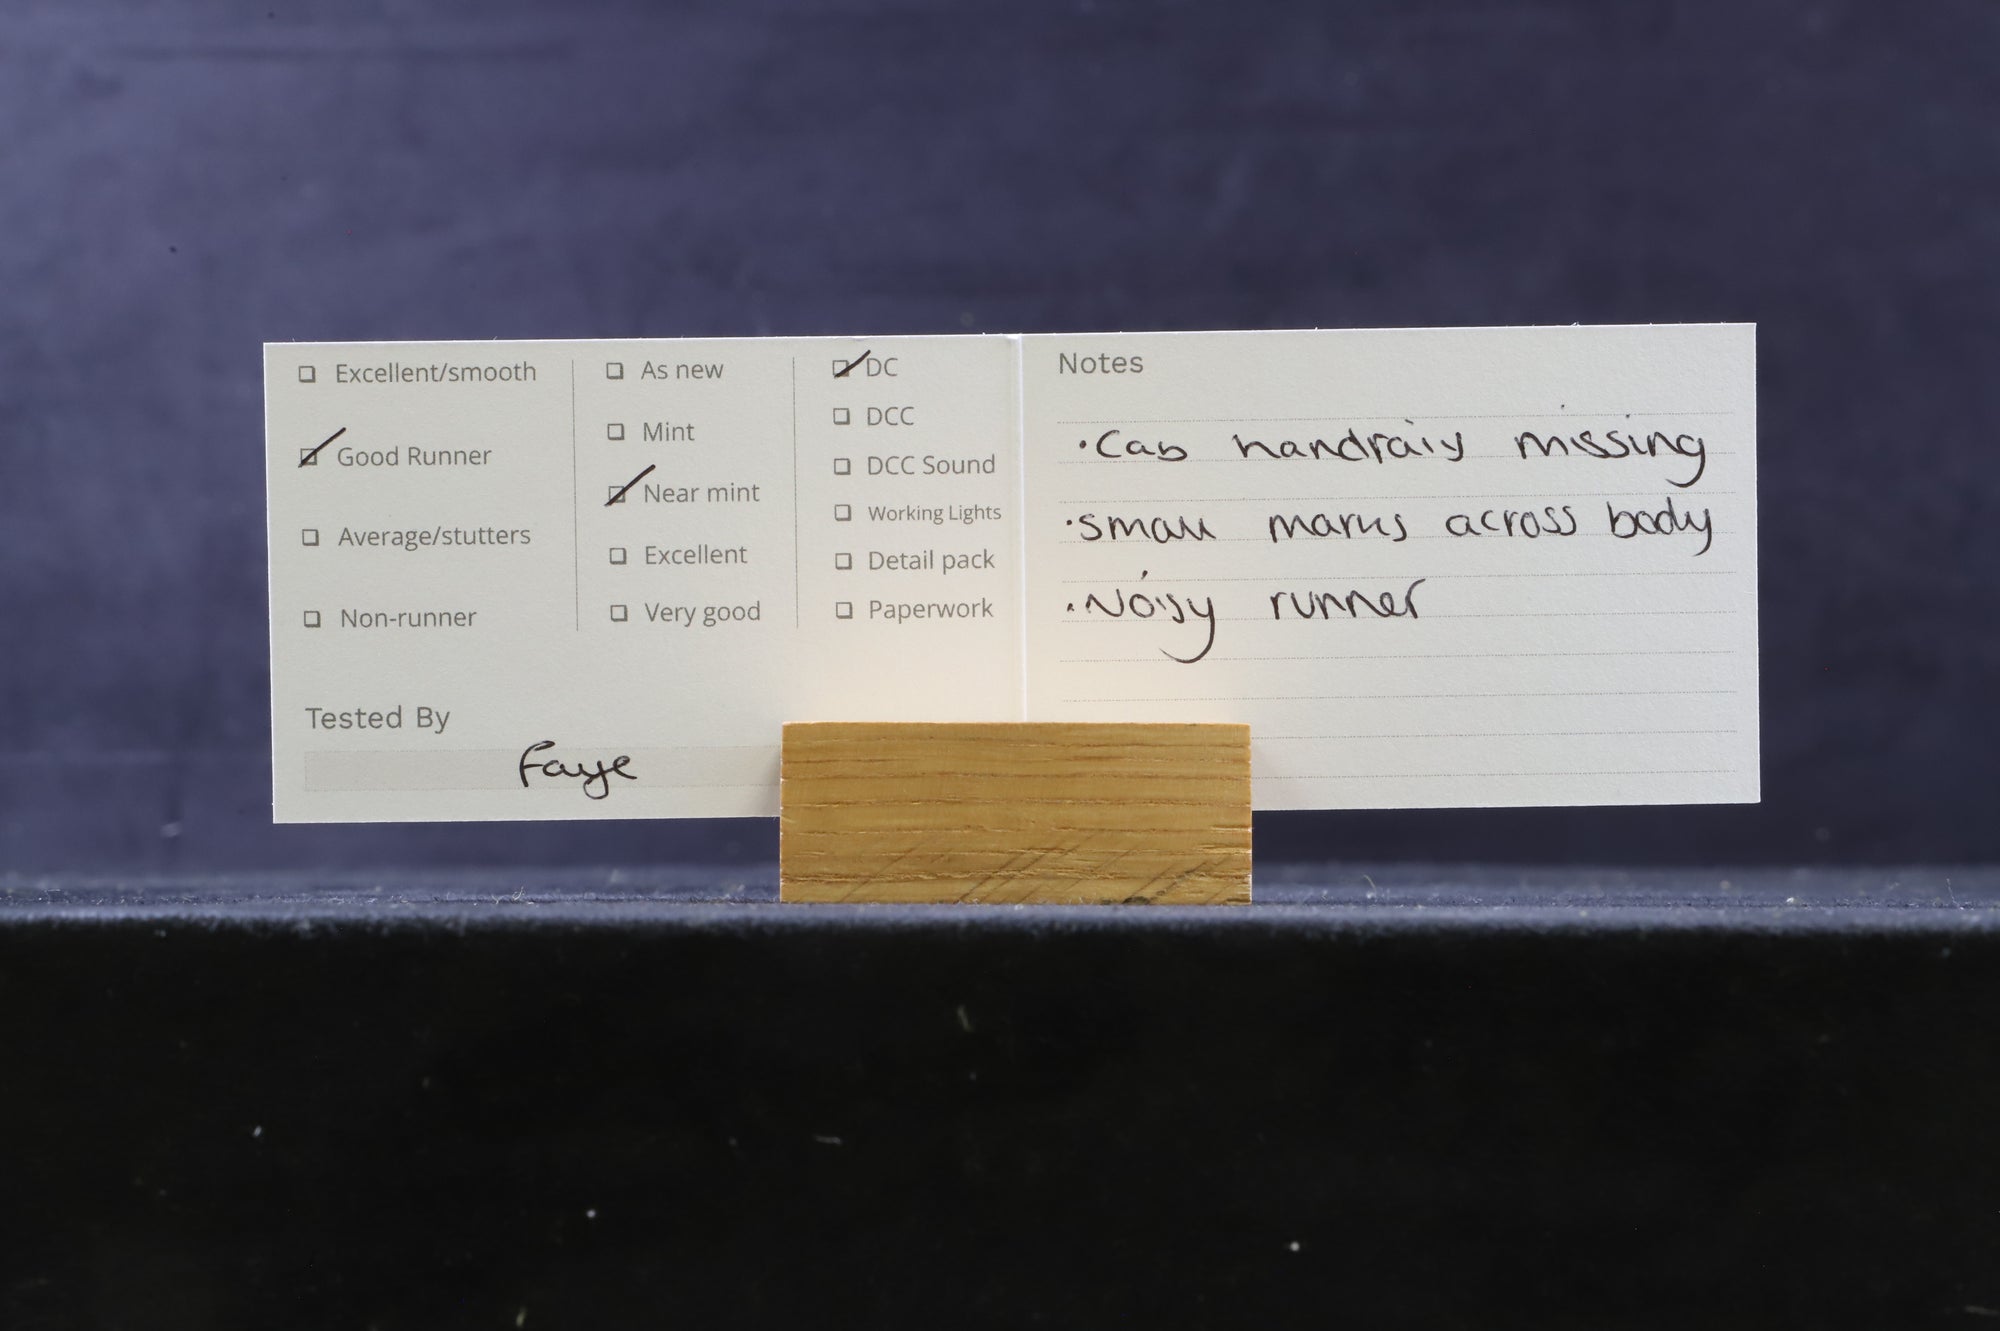 Excellent/smooth
Good Runner
Average/stutters
Non-runner
As new
Mint
Near mint
Excellent
Very good
DC
DCC
DCC Sound
Working Lights
Detail pack
Paperwork
Tested By
Faye
Notes
·Cab handrails missing
·small marks across body
·Noisy runner